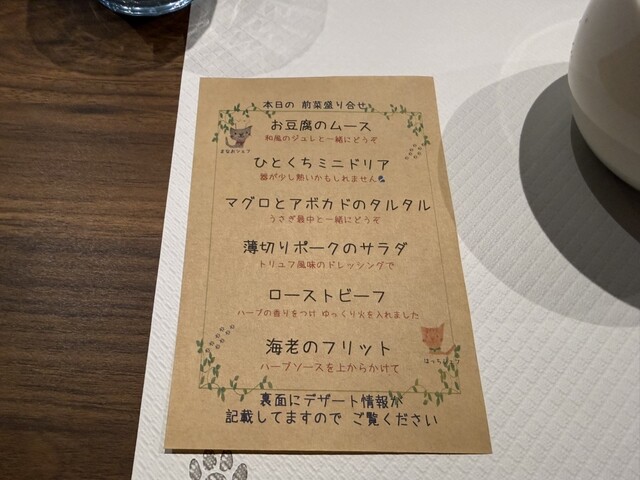 本日の 前菜盛り合せ
お豆腐のムース
和風のジュレと一緒にどうぞ
まなおシェフ
ひとくちミニドリア
器が少し熱いかもしれません
マグロとアボカドのタルタル
うさぎ最中と一緒にどうぞ
薄切りポークのサラダ
トリュフ風味のドレッシングで
ローストビーフ
ハーブの香りをつけ ゆっくり火を入れました
海老のフリット
ハーブソースを上からかけて
裏面にデザート情報が
記載してますので ご覧ください